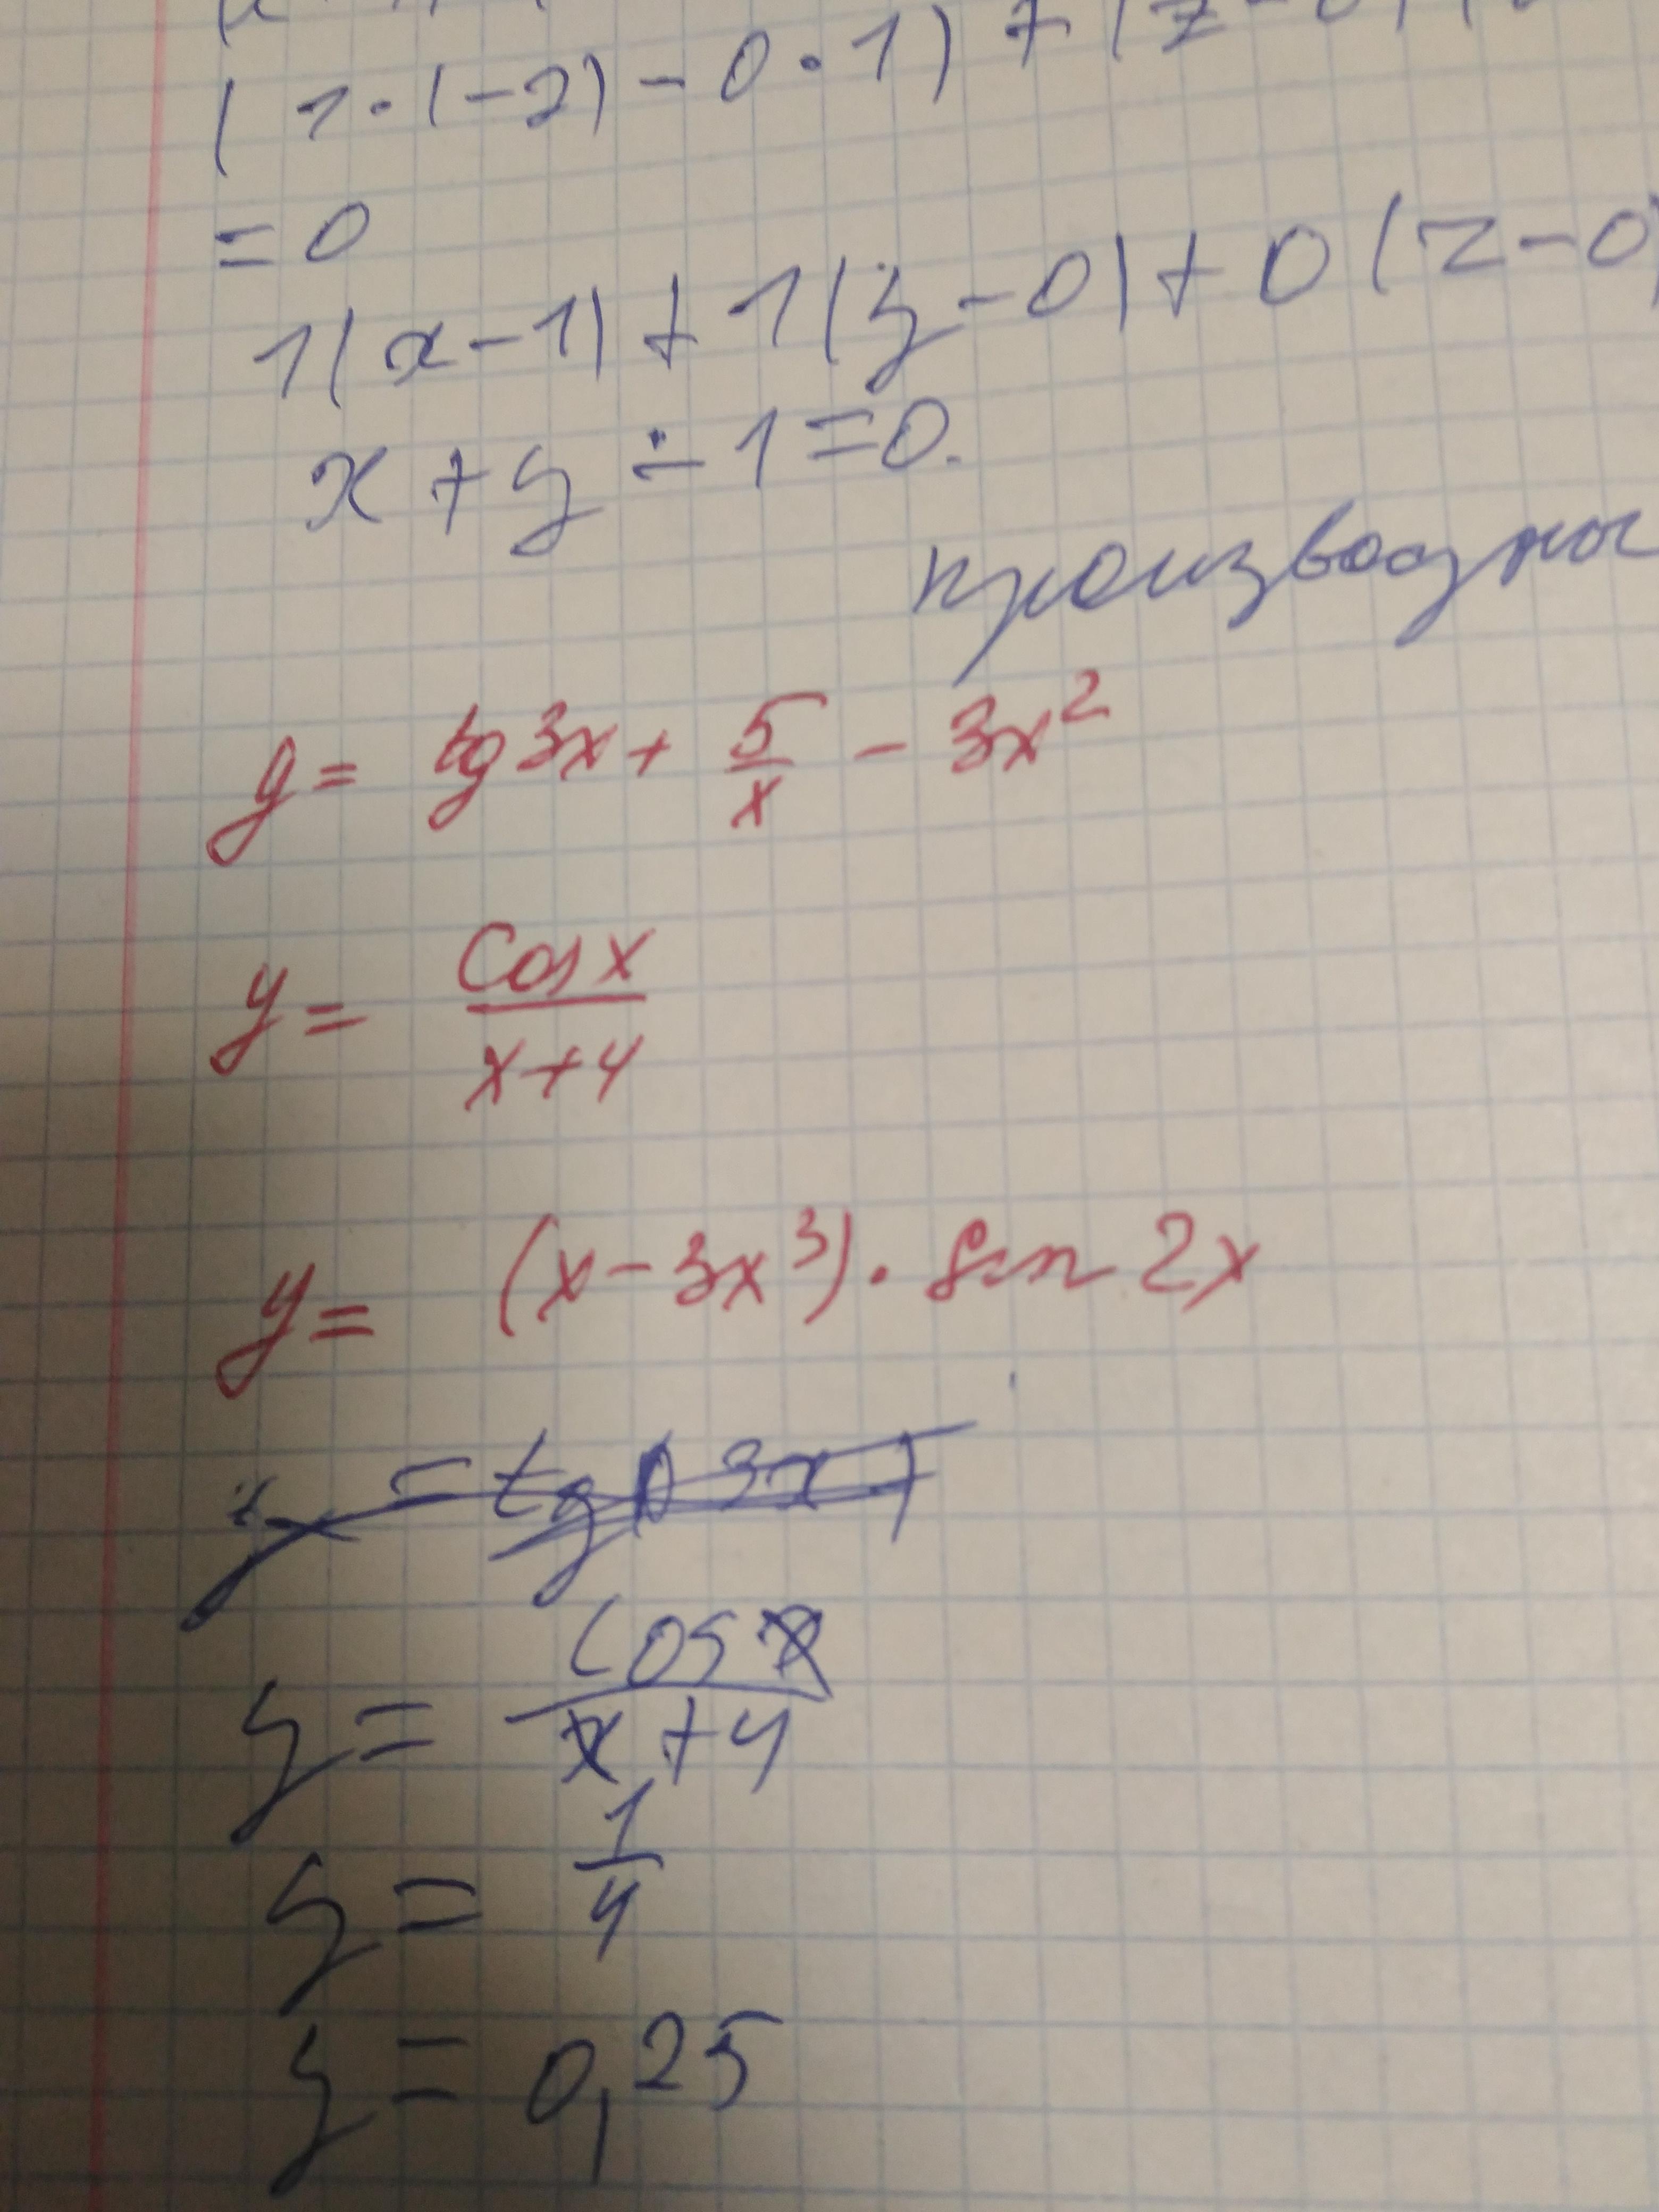 (1·(-2)-0·1)+(z-0)
=0
1(x-1)+1(y-0)+0(z-0)
x+y-1=0.
производны
y= tg3x+ 5/x - 3x²
y= cosx/x+4
y= (x-3x³)·sin2x
y=tg(3x)
y= cosx/x+4
y= 1/4
y= 0,25